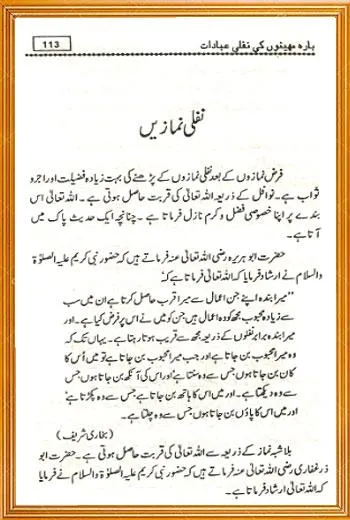 113
بارہ مہینوں کی نفلی عبادات
نفلی نمازیں
فرض نمازوں کے بعد نفلی نمازوں کے پڑھنے کی بہت زیادہ فضیلت اور اجر و
ثواب ہے۔ نوافل کے ذریعہ اللہ تعالیٰ کی قربت حاصل ہوتی ہے۔ اللہ تعالیٰ اس
بندے پر اپنا خصوصی فضل و کرم نازل فرماتا ہے۔ چنانچہ ایک حدیث پاک میں
آتا ہے۔
حضرت ابو ہریرہ رضی اللہ تعالیٰ عنہ فرماتے ہیں کہ حضور نبی کریم علیہ الصلوٰۃ
والسلام نے ارشاد فرمایا کہ اللہ تعالیٰ فرماتا ہے کہ
"میرا بندہ اپنے جن اعمال سے میرا قرب حاصل کرتا ہے ان میں سب
سے زیادہ محبوب مجھ کو وہ اعمال ہیں جن کو میں نے اس پر فرض کیا ہے۔ اور
میرا بندہ برابر نفلوں کے ذریعہ مجھ سے قریب ہوتا رہتا ہے۔ یہاں تک کہ
وہ میرا محبوب بن جاتا ہے اور جب میرا محبوب بن جاتا ہے تو میں اُس کا
کان بن جاتا ہوں جس سے وہ سنتا ہے' اور اس کی آنکھ بن جاتا ہوں جس
سے وہ دیکھتا ہے۔ اور میں اس کا ہاتھ بن جاتا ہے جس سے وہ پکڑتا ہے'
اور میں اس کا پاؤں بن جاتا ہوں جس سے وہ چلتا ہے۔
(بخاری شریف)
بلاشبہ نماز کے ذریعہ سے اللہ تعالیٰ کی قربت حاصل ہوتی ہے۔ حضرت ابو
ذر غفاری رضی اللہ تعالیٰ عنہ فرماتے ہیں کہ حضور نبی کریم علیہ الصلوٰۃ والسلام نے فرمایا
کہ اللہ تعالیٰ ارشاد فرماتا ہے۔